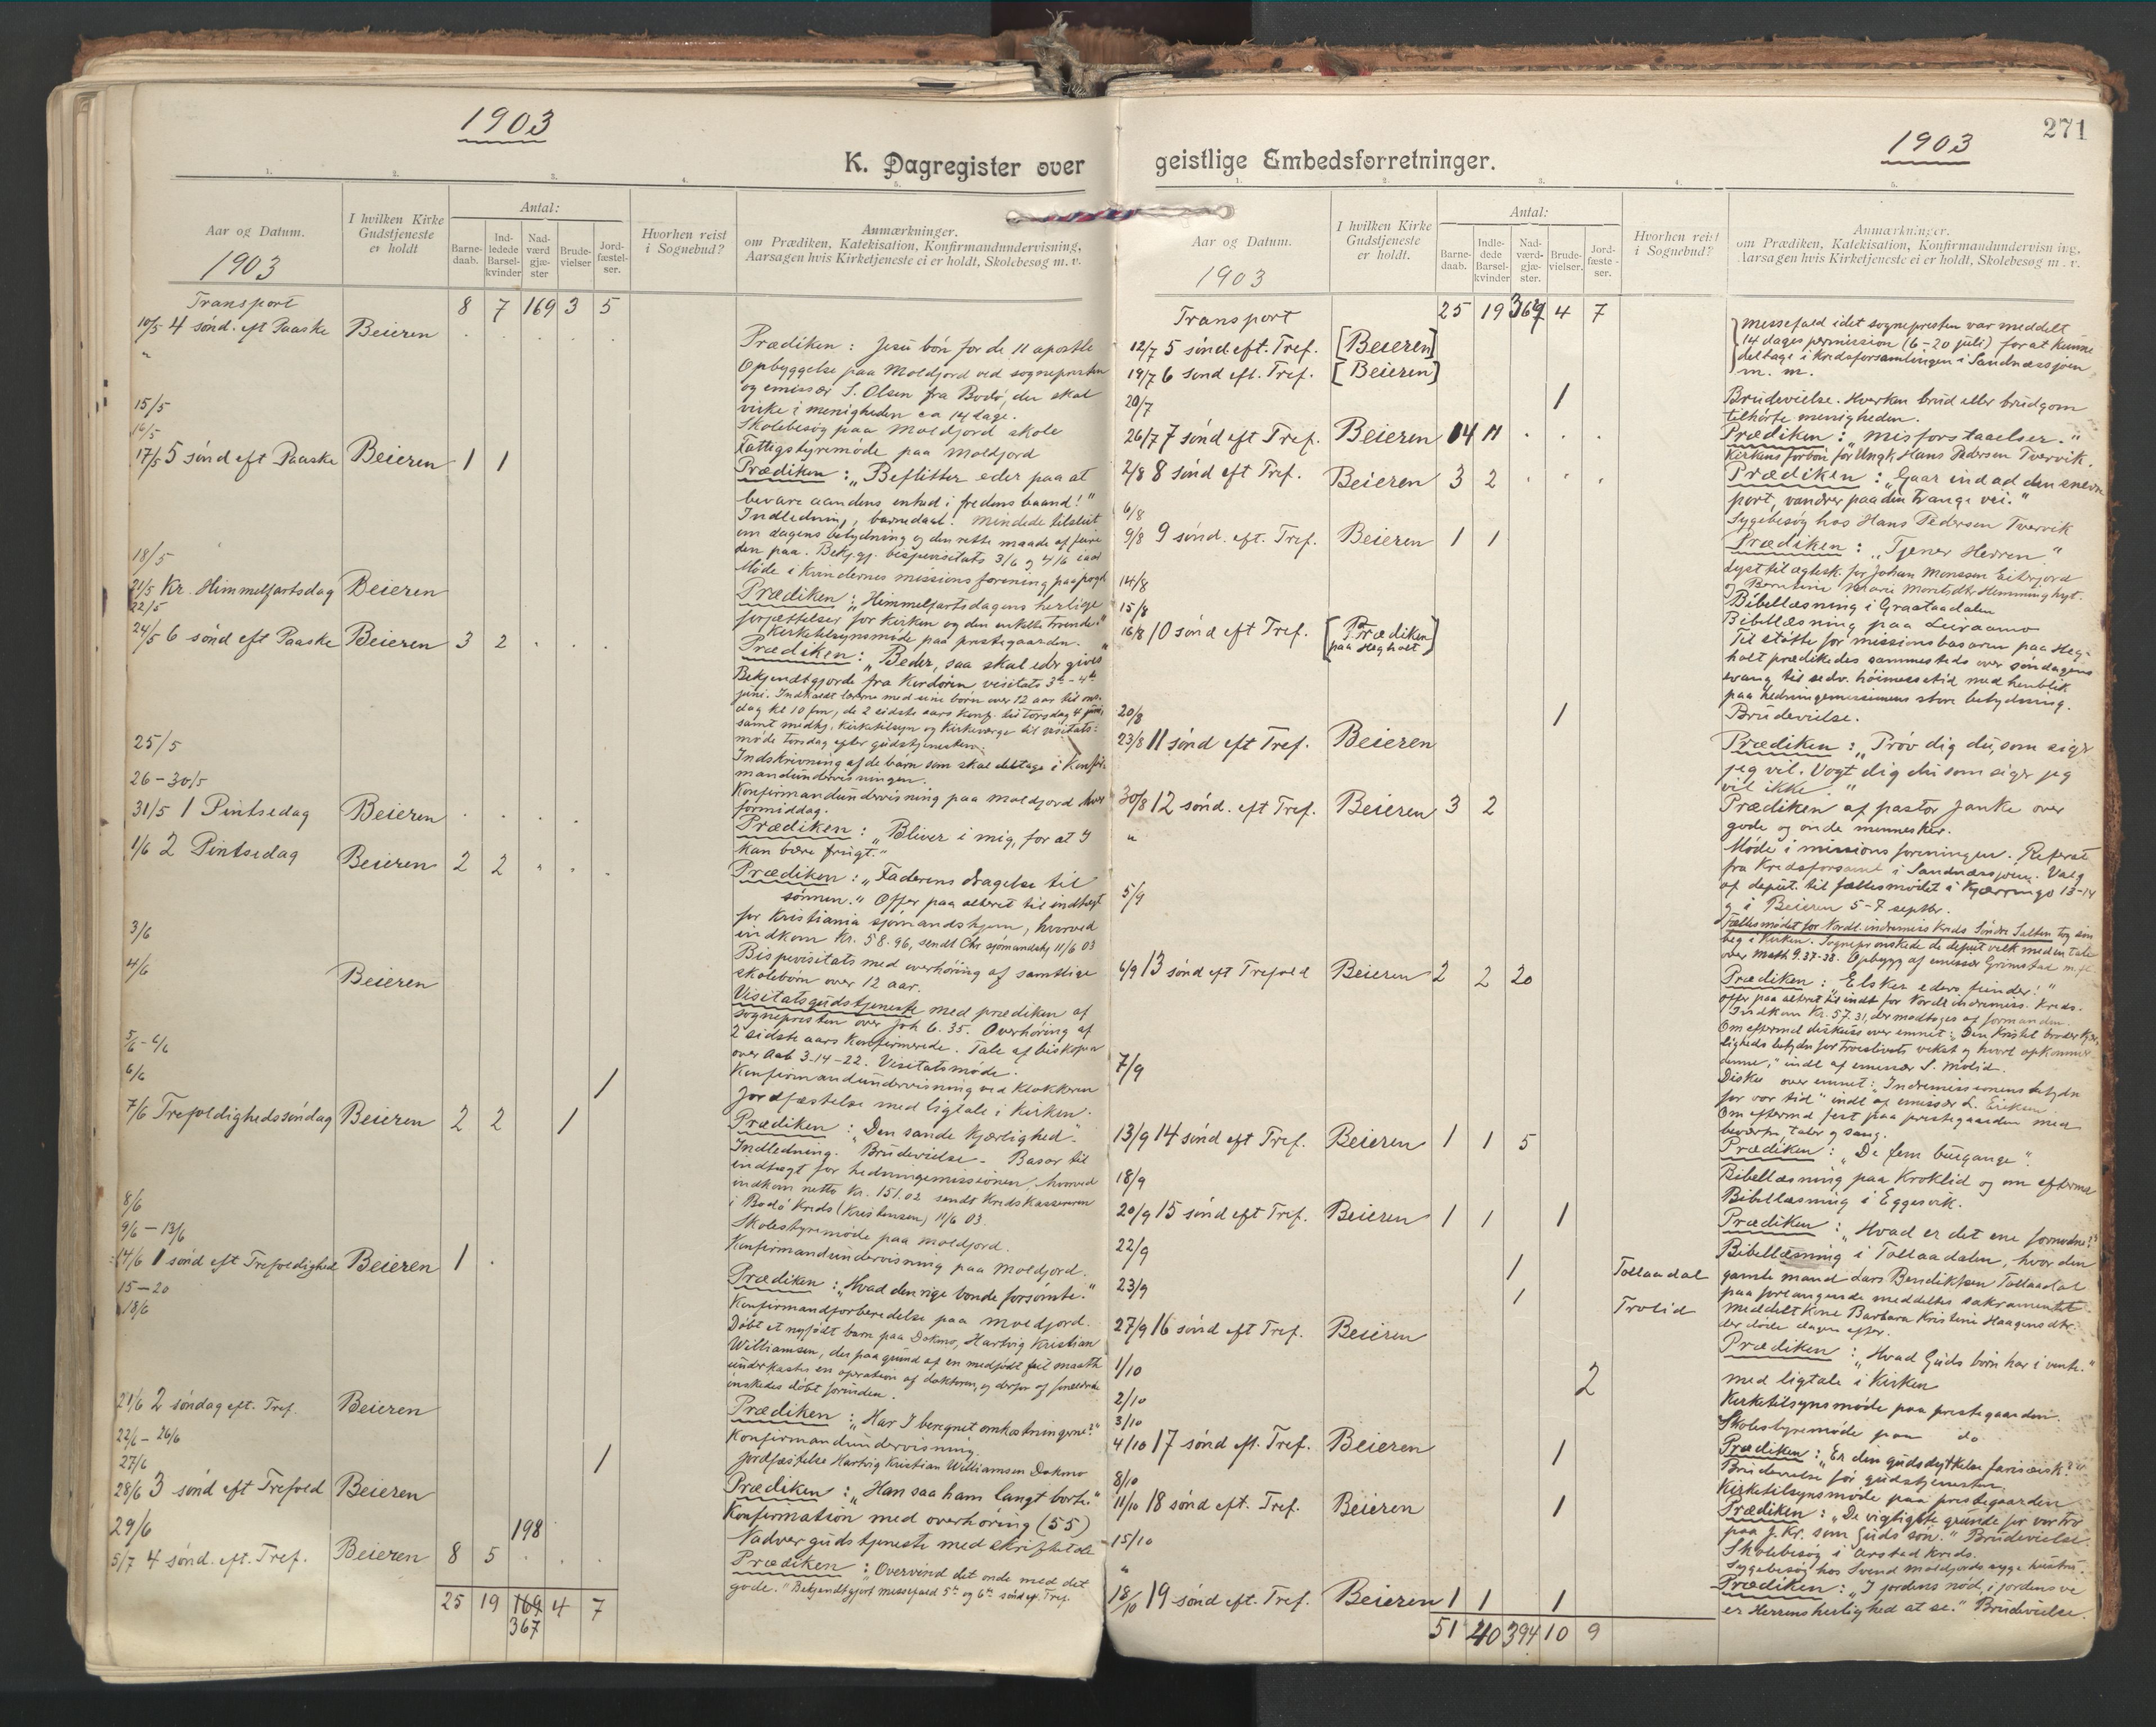 1903
K. Dagregister over
1.
2.
3.
4.
5.
Aar og Datum.
1903
I hvilken Kirke
Gudstjeneste
er holdt
Antal:
Barne-
daab.
Ind-
ledede
Barsel-
kvinder
Nad-
værd
gjæ-
ster
Brude-
vielser
Jord-
fæstel-
ser.
Hvorhen reist
i Sognebud?
Anmærkninger.
om Prædiken, Katekisation, Konfirmandundervisning,
Aarsagen hvis Kirketjeneste ei er holdt, Skolebesøg m. v.
Transport 8 7 169 3 5
10/5 4 sønd. eft Paaske Beieren
Prædiken: Jesu bøn for de 11 apostle
" Opbyggelse paa Moldjord ved sognepresten
og emissær S. Olsen fra Bodø, der skal
virke i menigheden ca 14 dage.
15/5 Skolebesøg paa Moldjord skole
16/5 Fattigstyremøde paa Moldjord
17/5 5 sønd eft Paaske Beieren 1 1
Prædiken: "Beflitter eder paa at
bevare aandens enhed i fredens baand!"
Indledning, barnedaab. Mindede tilslut
om dagens betydning og den rette maade at feire
den paa. Bekj.gj. bispevisitats 3/6 og 4/6 iaar
18/5 Møde i Kvindernes missionsforening paa prgd
21/5 Kr. Himmelfartsdag Beieren
Prædiken: "Himmelfartsdagens herlige
forjættelser for kirken og den enkelte troende."
22/5 Kirketilsynsmøde paa prestegaarden.
24/5 6 sønd eft Paaske Beieren 3 2
Prædiken: "Beder, saa skal eder gives"
Bekjendtgjorde fra Kordøren visitats 3die - 4de
juni. Indkaldt lærerne med sine børn over 12 aar til ons-
dag kl 10 fm, de 2 sidste aars konf. til torsdag 4 juni,
samt medhj. kirketilsyn og kirkeverge til visitats-
møde torsdag efter gudstjenesten.
25/5 Indskrivning af de barn som skal deltage i konfir-
mandundervisningen.
26-30/5 Konfirmandundervisning paa Moldjord hver
formiddag.
31/5 1 Pintsedag Beieren
Prædiken: "Bliver i mig, for at I
kan bære frugt."
1/6 2 Pintsedag Beieren 2 2
Prædiken: "Faderens dragelse til
sønnen." Offer paa alteret til indtægt
for Kristiania sjømandshjem, hvorved
indkom Kr. 58.96, sendt Chr sjømandshj 11/6 03
3/6 Bispevisitats med overhøring af samtlige
skolebørn over 12 aar.
4/6 Beieren
Visitatsgudstjeneste med prædiken af
sognepresten over Joh 6. 35. Overhøring af
2 sidste aars konfirmerede. Tale af biskopen
over Aab 3-14-22. Visitatsmøde.
5/6-6/6 Konfirmandundervisning ved klokkeren
6/6 1 Jordfæstelse med ligtale i kirken.
7/6 Trefoldighedssøndag Beieren 2 2 1
Prædiken: "Den sande kjærlighed".
Indledning. Brudevielse - Basar til
indtægt for hedningemissionen, hvorved
indkom netto Kr. 151.02 sendt Kredskassereren
i Bodø Kreds (Kristensen) 11/6 03.
8/6 Skolestyremøde paa Moldjord.
9/6-13/6 Konfirmandundervisning paa Moldjord.
14/6 1 sønd eft Trefoldighed Beieren 1
Prædiken: "Hvad den rige bonde forsømte."
15-20 Konfirmandforberedelse paa Moldjord.
18/6 Døbt et nyfødt barn paa Dokmo, Hartvig Kristian
Williamsen, der paa grund af en medfødt feil maatte
underkastes en operation af doktoren, og derfor af forældrene
ønskedes døbt forinden.
21/6 2 søndag eft. Tref. Beieren
Prædiken: "Har I beregnet omkostningerne?"
22/6-26/6 Konfirmandundervisning.
27/6 1 Jordfæstelse Hartvig Kristian Williamsen Dokmo
28/6 3 sønd eft Trefold Beieren
Prædiken: "Han saa ham langt borte."
Konfirmation med overhøring (55)
29/6 198 Nadvergudstjeneste med skriftetale
5/7 4 sønd. eft. Tref. Beieren 8 5
Prædiken: "Overvind det onde med det
gode." Bekjendtgjort messefald 5te og 6te sønd ef. Tref.
25 19 169 4 7
367
271
1903
geistlige Embedsforretninger.
1.
2.
3.
4.
5.
Aar og Datum.
1903
I hvilken Kirke
Gudstjeneste
er holdt.
Antal:
Barne-
daab.
Indle-
dede
Barsel-
kvinder
Nad-
værd-
gjæ-
ster.
Brude-
vielser.
Jord-
fæste-
ser.
Hvorhen reist
i Sognebud?
Anmærkninger.
om Prædiken, Katekisation, Konfirmandundervisning,
Aarsagen hvis Kirketjeneste ei er holdt, Skolebesøg m. v.
Transport 25 19 367 4 7
12/7 5 sønd. eft. Tref. [Beieren]
19/7 6 sønd eft. Tref. [Beieren]
messefald idet sognepresten var meddelt
14 dages permission (6-20 juli) for at kunne
deltage i kredsforsamlingen i Sandnæssjøen
m. m.
20/7 1 Brudevielse. Hverken brud eller brudgom
tilhørte menigheden.
26/7 7 sønd eft Tref. Beieren 14 11
Prædiken: "Misforstaaelser."
Kirkens forbøn for Ungk. Hans Pedersen Tvervik.
2/8 8 sønd eft Tref. Beieren 3 2
Prædiken: "Gaar ind ad den snevre
port, vandrer paa den trange vei."
6/8 Sygebesøg hos Hans Pedersen Tvervik
9/8 9 sønd. eft. Tref. Beieren 1 1
Prædiken: "Tjener Herren"
Lyst til ægtesk. for Johan Monssen Eiterjord
og Berntine Marie Moritsdtr Hemminghyt.
14/8 Bibellæsning i Graataadalen
15/8 Bibellæsning paa Leiraamo
16/8 10 sønd eft Tref. [Prædiken
paa Hegholt]
Til støtte for missionsbasaren paa Heg-
holt prædikedes sammesteds over søndagens
evang til sedv. høimessetid med henblik
paa hedningemissionens store betydning.
20/8 1 Brudevielse.
23/8 11 sønd eft Tref. Beieren
Prædiken: "Prøv dig du, som siger
jeg vil. Vogt dig du som siger jeg
vil ikke."
30/8 12 sønd. eft Tref. Beieren 3 2
Prædiken af pastor Janke over
gode og onde mennesker.
" Møde i missionsforeningen. Referat
fra Kredsforsaml i Sandnæssjøen. Valg
af deput. til fællesmødet i Kjærringø 13-14
og i Beieren 5-7 septbr.
5/9 Fællesmødet for Nordl. indremiss Kreds Søndre Salten tog sin
beg i kirken. Sognepr ønskede de deput velk med en tale
over Math 9.37-38. Opbygg af emissær Grimstad m. fl.
6/9 13 sønd eft Trefold Beieren 2 2 20
Prædiken: "Elsker eders fiender!"
Offer paa alteret til indt for Nordl indremiss. Kreds.
Indkom Kr. 57.31, der modtoges af formanden.
Om efterm diskuss over emnet: "Den kristel broderkjær-
ligheds betydn for troeslivets vekst og hvort opkommer
denne," indl af emissær S. Molid.
7/9 Diskus over emnet: "Indremissionens betydn
for vor tid" indl af emissær L. Eriksen.
Om eftermd fest paa prestegaarden med
bevertn taler og sang.
13/9 14 sønd eft Tref. Beieren 1 1 5
Prædiken: "De fem buegange".
18/9 Bibellæsning paa Kroklid og om efterm
Bibellæsning i Eggesvik.
20/9 15 sønd eft Tref. Beieren 1 1 1
Prædiken: "Hvad er det ene fornødne?"
22/9 1 Tollaadal Bibellæsning i Tollaadalen, hvor den
gamle mand Lars Bendiksen Tollaadal
paa forlangende meddeltes sakramentet
23/9 1 Trolid meddelt Kone Barbara Kristine Haagensdtr.
der døde dagen efter.
27/9 16 sønd eft Tref. Beieren
Prædiken: "Hvad Guds børn har i vente."
1/10 2 med ligtale i kirken
2/10 Kirketilsynsmøde paa prestegaarden.
3/10 Skolestyremøde paa do
4/10 17 sønd eft. Tref. Beieren 1
Prædiken: "Er din gudsdyrkelse farisæisk?"
Brudevielse før gudstjenesten.
8/10 Kirketilsynsmøde paa prestegaarden
11/10 18 sønd eft. Tref. Beieren 1
Prædiken: "De vigtigste grunde for vor tro
paa J. Kr. som Guds søn." Brudevielse.
15/10 Skolebesøg i Arstad kreds.
" Sygebesøg hos Svend Moldjords syge hustru.
18/10 19 sønd eft. Tref. Beieren 1 1 1
Prædiken: "I jordens nød, i jordens ve
er Herrens herlighed at se." Brudevielse.
51 40 394 10 9